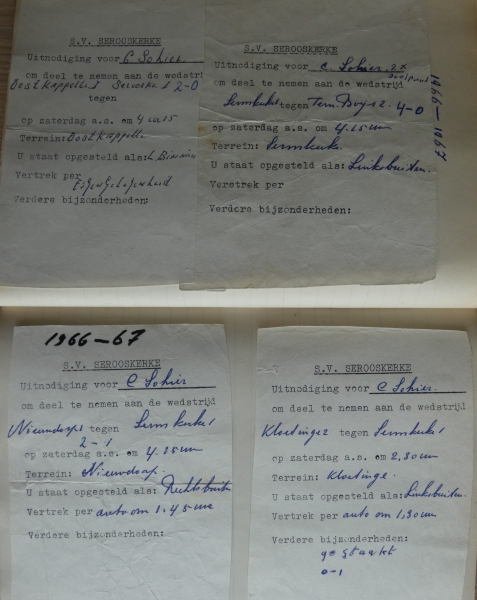 S.V. SEROOSKERKE
Uitnodiging voor C Sohier
om deel te nemen aan de wedstrijd
Oostkappelle 1 2-0
tegen
op zaterdag a.s. om 4 uur 15
Terrein: Oostkappelle
U staat opgesteld als: L Binnen
Vertrek per
Eigen Gelegenheid
Verdere bijzonderheden:
S.V. SEROOSKERKE
Uitnodiging voor C. Sohier. 2x
om deel te nemen aan de wedstrijd
tegen Tern Boys 2. 4-0
op zaterdag a.s. om 4.15 uur
Terrein:
U staat opgesteld als: Linksbuiten.
Verstrek per
Verdere bijzonderheden:
1966-1967
1966-67
S.V. SEROOSKERKE
Uitnodiging voor C Sohier
om deel te nemen aan de wedstrijd
Nieuwdorp 1 tegen
2-1
op zaterdag a.s. om 4.15 uur
Terrein: Nieuwdorp.
U staat opgesteld als: Rechtsbuiten
Vertrek per auto om 1.45 uur
Verdere bijzonderheden:
S.V. SEROOSKERKE
Uitnodiging voor C Sohier.
om deel te nemen aan de wedstrijd
Kloetinge 2 tegen
op zaterdag a.s. om 2,30 uur
Terrein: Kloetinge.
U staat opgesteld als: Linksbuiten.
Vertrek per auto om 1,30 uur
Verdere bijzonderheden:
gestaakt
0-1